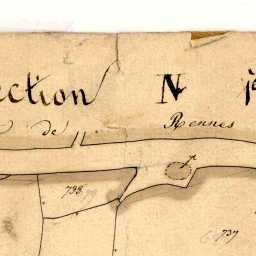 ection N
de Rennes
738
737